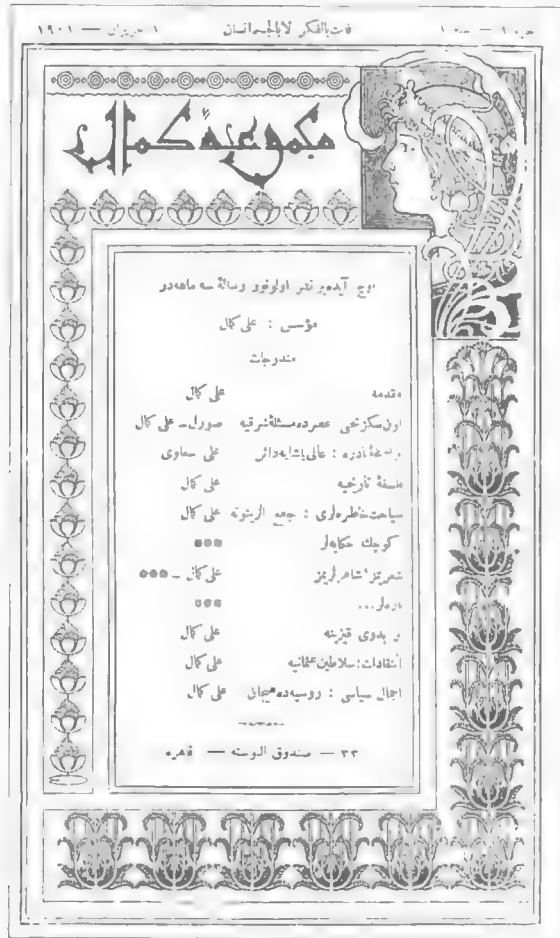 جزء ١ — سنه ١ فانت بالفكر لا بالجسم انسان ١ حزيران — ١٩٠١
مجموعۀ كمال
اوچ آيده بر نشر اولونور رسالۀ سه ماهه در
مؤسسى : على كمال
مندرجات
مقدمه على كمال
اون سكزنجى عصرده مسئلۀ شرقيه صورل — على كمال
نسخۀ نادره : عالى پاشايه دائر على سعاوى
فلسفۀ تاريخيه على كمال
سياحت خاطره لرى : جامع الزيتونه على كمال
كوچك حكايه لر ***
شعريمز، شاعرلريمز على كمال — ***
...
بر بدوى قيزينه على كمال
انتقادات : سلاطين عثمانيه على كمال
اجمال سياسى : روسيه ده هيجان على كمال
٣٣ — صندوق البوسته — قاهره